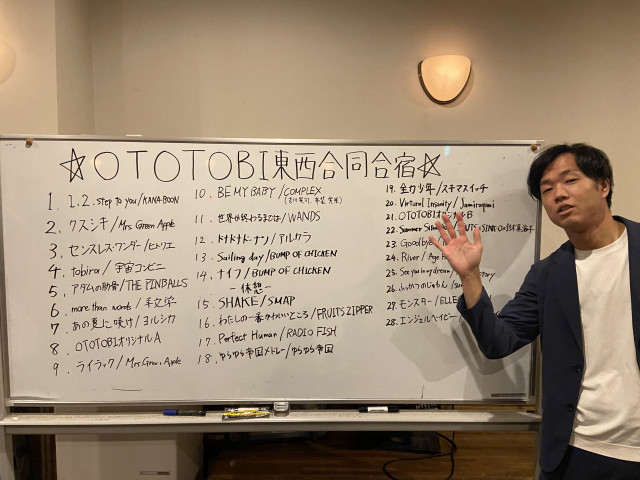 ☆OTOTOBI東西合同合宿☆
1. 1.2. step to you/KANA-BOON
2. クスシキ/Mrs.Green Apple
3. センスレス・ワンダー/ヒトリエ
4. tobira/宇宙コンビニ
5. アダムの肋骨/THE PINBALLS
6. more than words/羊文学
7. あの夏に咲け/ヨルシカ
8. OTOTOBIオリジナルA
9. ライラック/Mrs.Green Apple
10. BE MY BABY/COMPLEX
11. 世界が終わるまでは/WANDS
12. ドナドナドーナン/アルカラ
13. Sailing day/BUMP OF CHICKEN
14. ナイフ/BUMP OF CHICKEN
ー休憩ー
15. SHAKE/SMAP
16. わたしの一番かわいいところ/FRUITS ZIPPER
17. Perfect Human/RADIO FISH
18. ゆらゆら帝国メドレー/ゆらゆら帝国
19. 全力少年/スキマスイッチ
20. Virtural Insanity/Jamiroquai
21. OTOTOBIオリジナルB
22. Summer
23. Goodbye
24. River/Age
25. See you in my dream
26. ふっかつのじゅもん
27. モンスター/ELLE
28. エンジェルベイビー